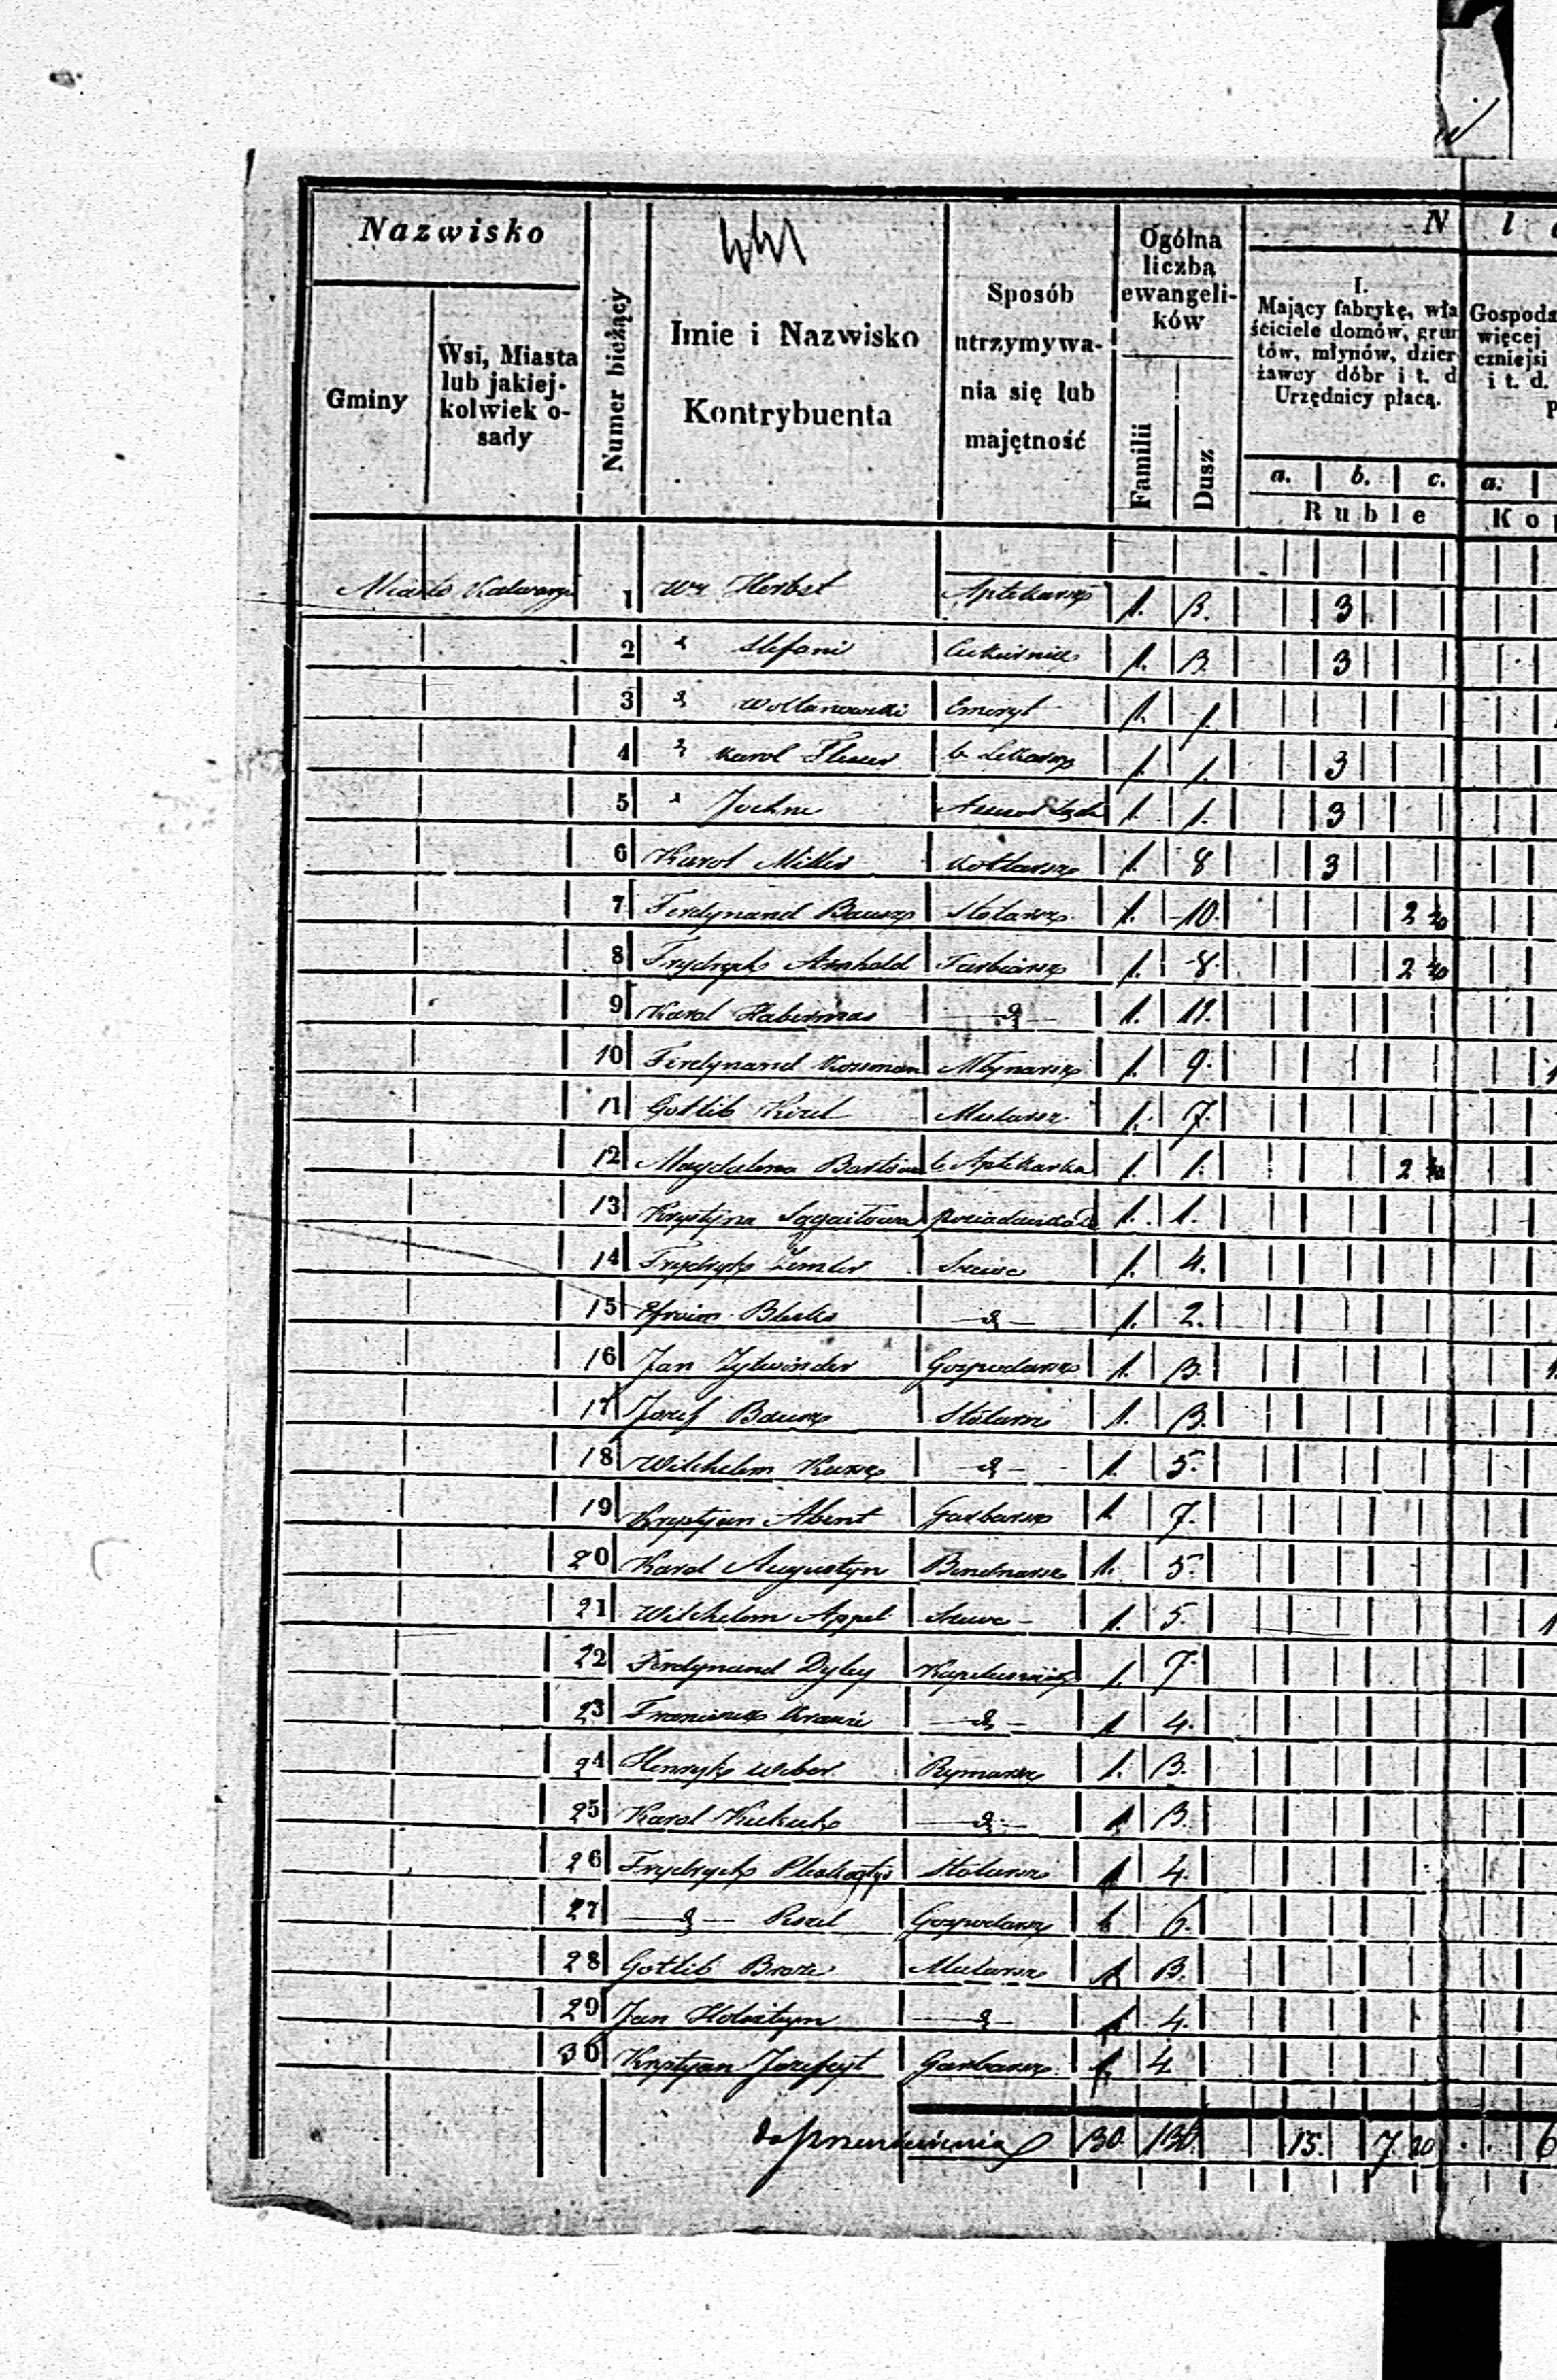 Nazwisko
Gminy
Wsi, Miasta
lub jakiej-
kolwiek o-
sady
Numer bieżący
Imie i Nazwisko
Kontrybuenta
Sposób
utrzymywa-
nia się lub
majętność
Ogólna
liczba
ewangeli-
ków
Familii
Dusz
N
I.
Mający fabrykę, wła
ściciele domów, grun
tów, młynów, dzier
żawcy dóbr i t. d
Urzędnicy płacą.
a. b. c.
Ruble
Gospoda
więcej
czniejsi
i t. d.
a.
Ko
Miasto Kalwarya 1 Wr Herbst Aptekarz 1. 3. 3
2 " Stefani Cukiernik 1. 3. 3
3 " Woltanowski Emeryt 1. 1.
4 " Karol b. Lekarz 1. 1. 3
5 " Jochne 1. 1. 3
6 Karol Miller Kotlarz 1. 8 3
7 Ferdynand Bausz Stolarz 1. 10. 2 40
8 Frydrych Arnhold Farbiarz 1. 8. 2 40
9 Karol Habermas d 1. 11.
10 Ferdynand Kossman Młynarz 1. 9.
11 Gotlib Mularz 1. 7.
12 Magdalena b. Aptekarka 1. 1. 2 40
13 Krystyna 1. 1.
14 Frydryk Zemler Szewc 1. 4.
15 d 1. 2.
16 Jan Gospodarz 1. 3.
17 Jozef Bausz Stolarz 1. 3.
18 Wilhelm Kunz d 1. 5.
19 Krystjan Abent Garbarz 1. 7.
20 Karol Augustyn Bendnarz 1. 5.
21 Wilhelm Appel Szewc 1. 5.
22 Ferdynand Dyley Kapelusznik 1. 7.
23 Franciszek Krauze d 1 4.
24 Henryk Weber Rymarz 1. 3.
25 Karol Kukuk d 1 3.
26 Frydrych Stolarz 1 4.
27 d Gospodarz 1 6.
28 Gotlib Broze Mularz 1 3.
29 Jan Holsztyn d 1 4.
30 Krystjan Garbarz 1. 4
do przeniesienia 30. 130. 15. 7 20 6